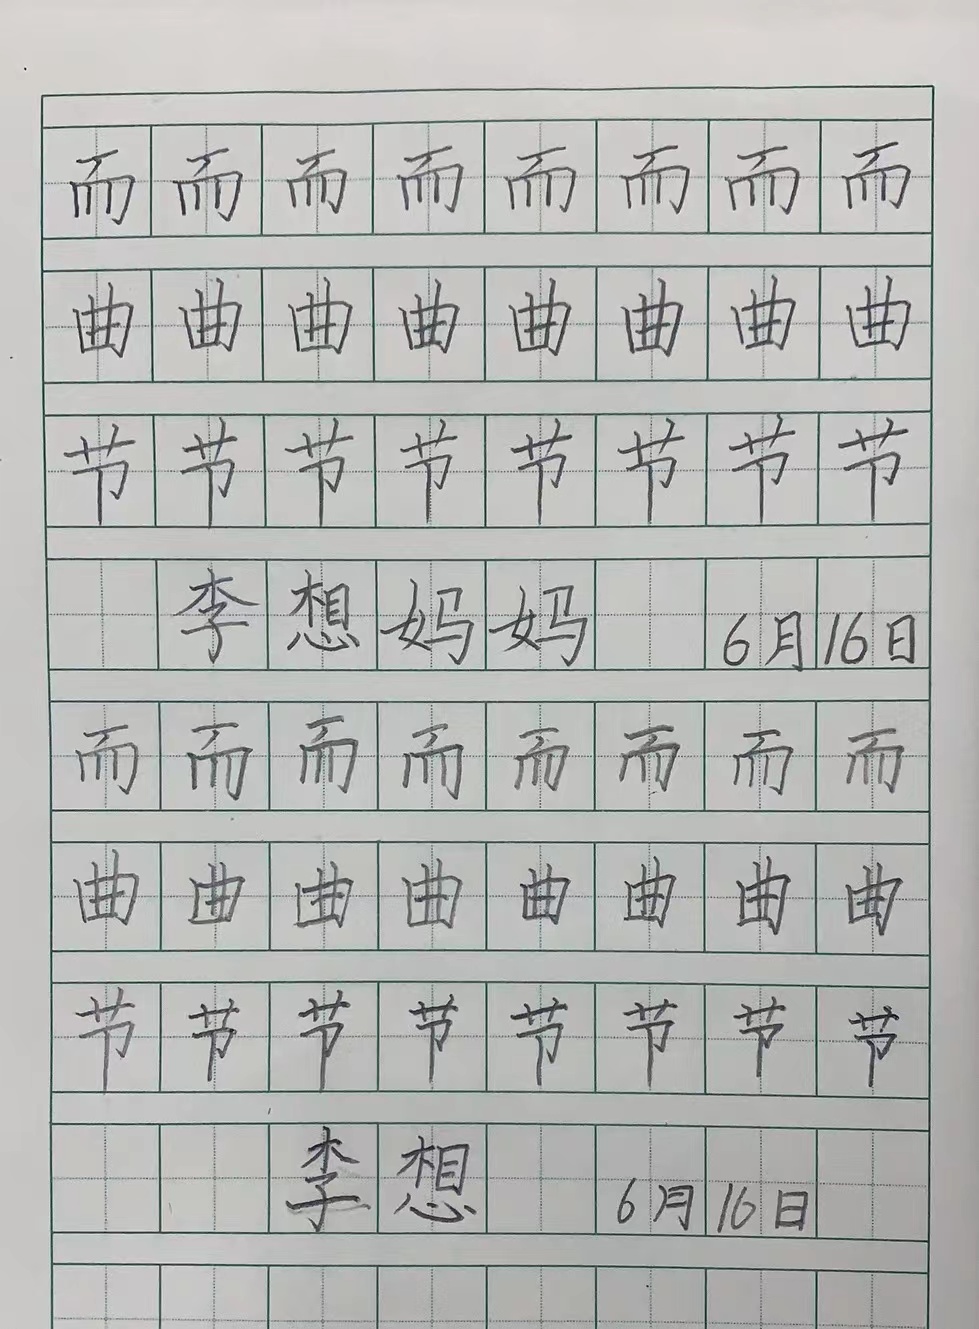 而而而而而而而而
曲曲曲曲曲曲曲曲
节节节节节节节节
李想妈妈 6月16日
而而而而而而而而
曲曲曲曲曲曲曲曲
节节节节节节节节
李想 6月16日